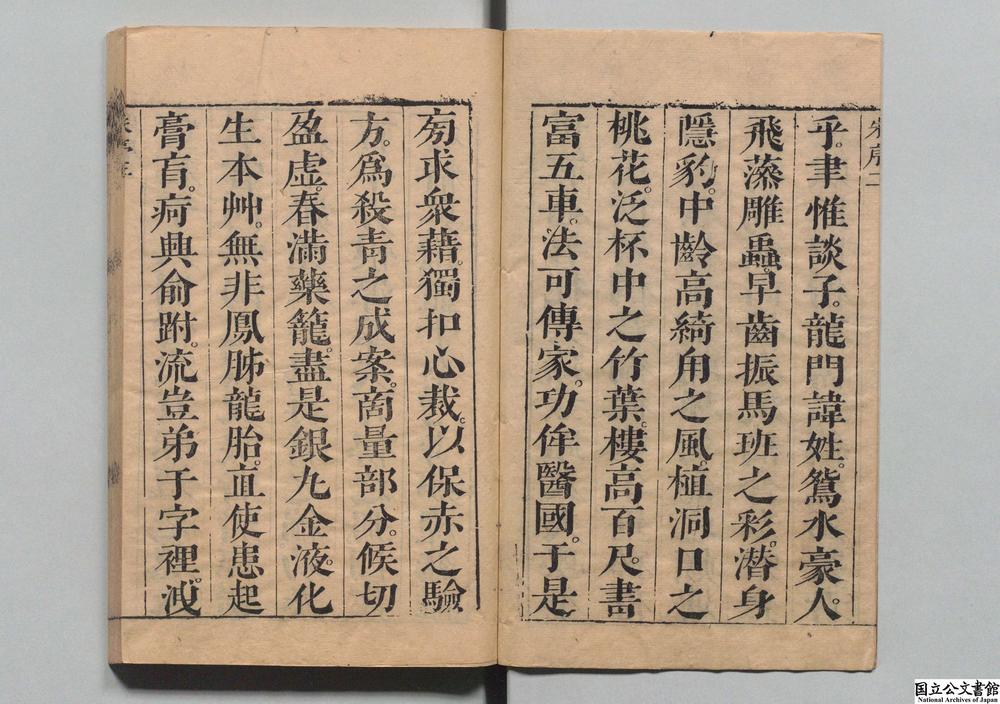 朱序二
乎聿惟談子龍門諱姓鴛水豪人
飛藻雕蟲早齒振馬班之彩潛身
隱豹中齡高綺角之風植洞口之
桃花泛杯中之竹葉樓高百尺書
富五車法可傳家功侔醫國于是
旁求衆藉獨扣心裁以保赤之驗
方爲殺青之成案商量部分候切
盈虛春滿藥籠盡是銀九金液化
生本艸無非鳳肺龍胎直使患起
膏肓疴興俞跗流豈弟于字裡洩
国立公文書館
National Archives of Japan